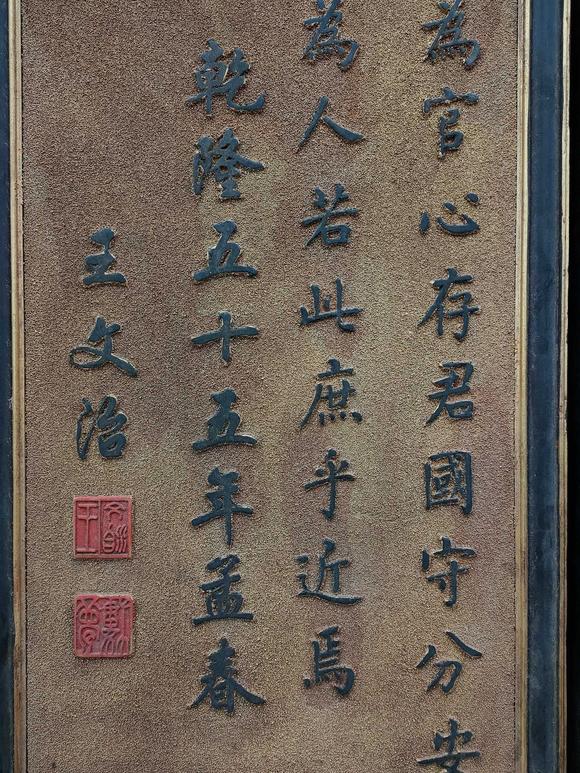 為官心存君國守分安
為人若此庶乎近焉
乾隆五十五年孟春
王文治